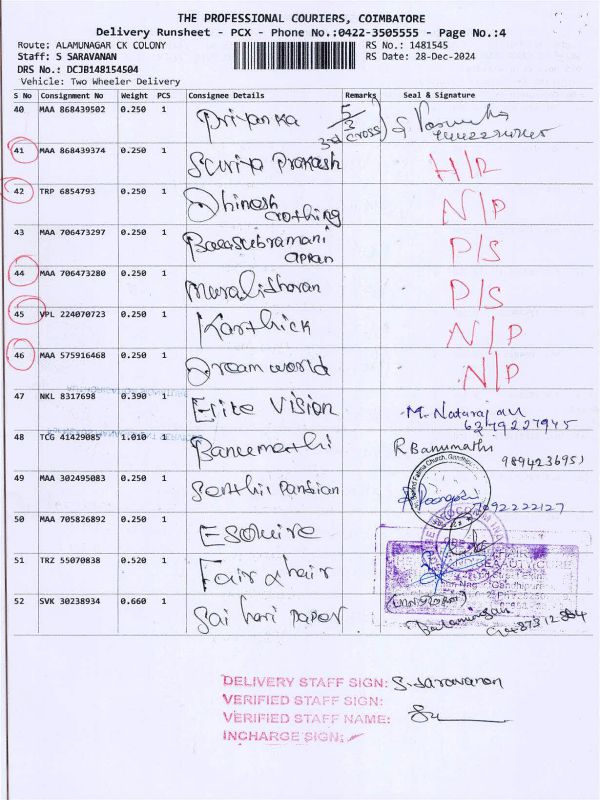 THE PROFESSIONAL COURIERS, COIMBATORE
Delivery Runsheet - PCX - Phone No.:0422-3505555 - Page No.:4
Route: ALAMUNAGAR CK COLONY RS No.: 1481545
Staff: S SARAVANAN RS Date: 28-Dec-2024
DRS No.: DCJB148154504
Vehicle: Two Wheeler Delivery
S No Consignment No Weight PCS Consignee Details Remarks Seal & Signature
40 MAA 868439502 0.250 1 Priyanka 5/3 3rd cross
41 MAA 868439374 0.250 1 Suriya Prakash H/R
42 TRP 6854793 0.250 1 Dhinesh clothing N/P
43 MAA 706473297 0.250 1 Balasubramani P/S
44 MAA 706473280 0.250 1 Muralidharan P/S
45 VPL 224070723 0.250 1 Karthick N/P
46 MAA 575916468 0.250 1 Dream world N/P
47 NKL 8317698 0.390 1 Elite Vision M. Natarajan
6379227945
48 TCG 41429085 1.010 1 Banumathi R Banumathi
9894236951
49 MAA 302495083 0.250 1 Senthil Pandian
7092222127
50 MAA 705826892 0.250 1 Esquire
51 TRZ 55070838 0.520 1 Fair & hair
52 SVK 30238934 0.660 1 Sai hari paper
DELIVERY STAFF SIGN: S. Saravanan
VERIFIED STAFF SIGN:
VERIFIED STAFF NAME:
INCHARGE SIGN: